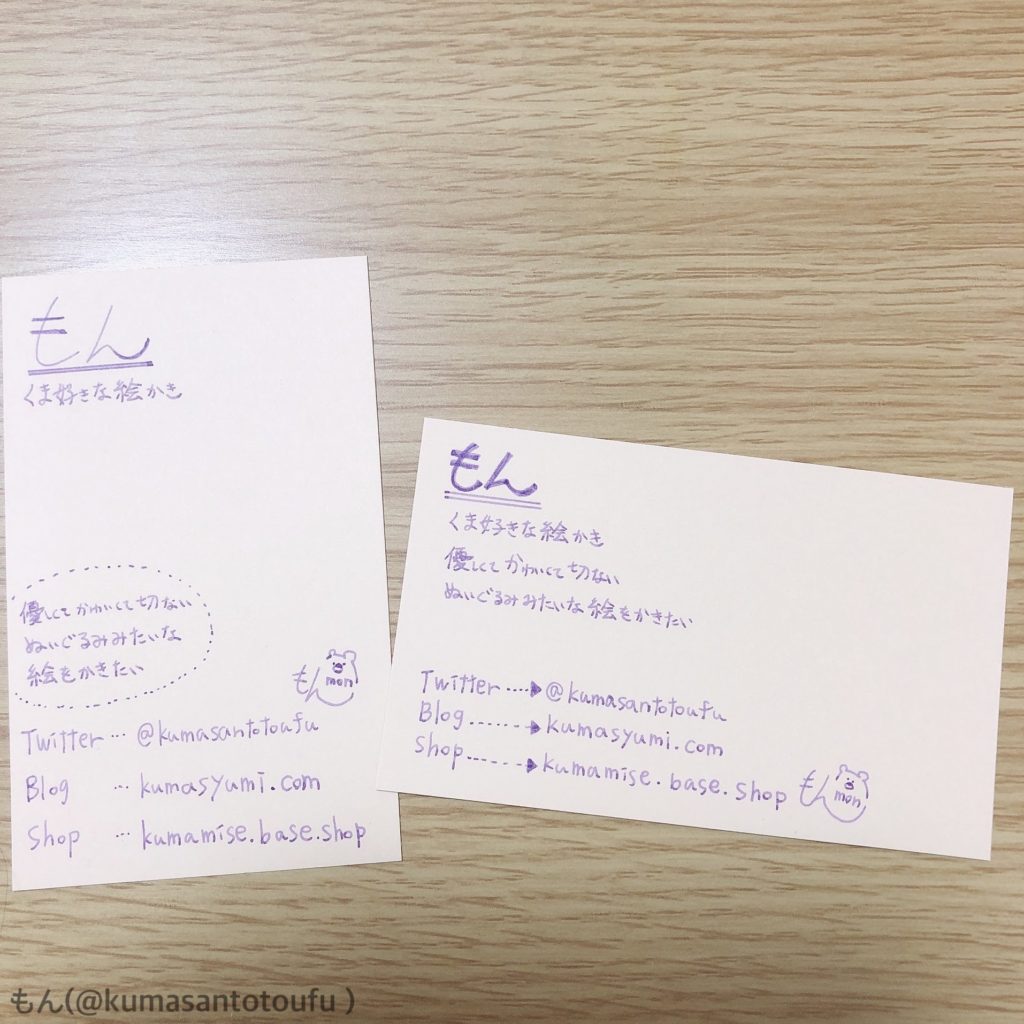 もん
くま好きな絵かき
優しくてかわいくて切ない
ぬいぐるみみたいな
絵をかきたい
もん mon
Twitter … @kumasantotoufu
Blog … kumasyumi.com
Shop … kumamise.base.shop
もん
くま好きな絵かき
優しくてかわいくて切ない
ぬいぐるみみたいな絵をかきたい
Twitter ----▶ @kumasantotoufu
Blog ------▶ kumasyumi.com
Shop ------▶ kumamise.base.shop
もん mon
もん(@kumasantotoufu )